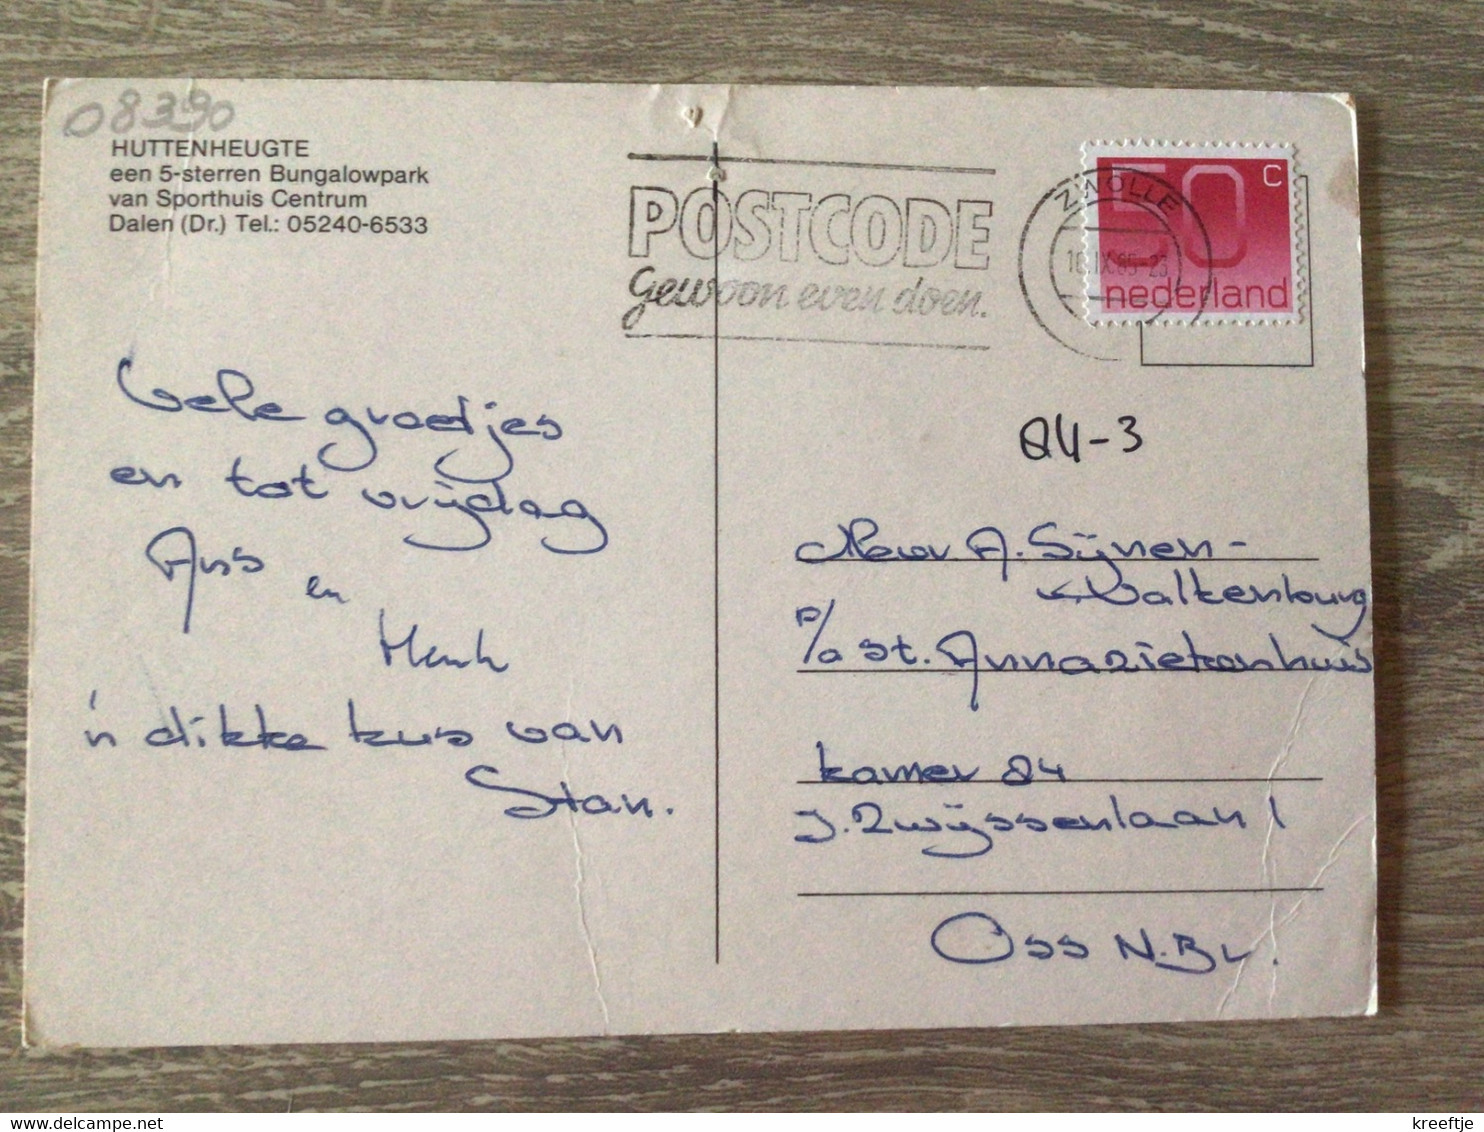 08390
HUTTENHEUGTE
een 5-sterren Bungalowpark
van Sporthuis Centrum
Dalen (Dr.) Tel.: 05240-6533
POSTCODE
gewoon even doen.
ZWOLLE
50 c
nederland
Vele groetjes
en tot vrijdag
Ans en
Henk
'n dikke kus van
Stan.
84-3
Mevr A. Sijnen-
v Valkenburg
P/a St. Annaziekenhuis
kamer 84
J. Zwijssenlaan 1
Oss N.Br.
Delcampe.net
kreeftje